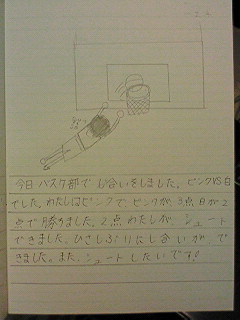 今日バスケ部でし合いをしました。ピンクVS白
でした。わたしはピンクで、ピンクが、3点、白が2
点で勝ちました。2点わたしが、シュート
できました。ひさしぶりにし合いが
できました。また、シュートしたいです!